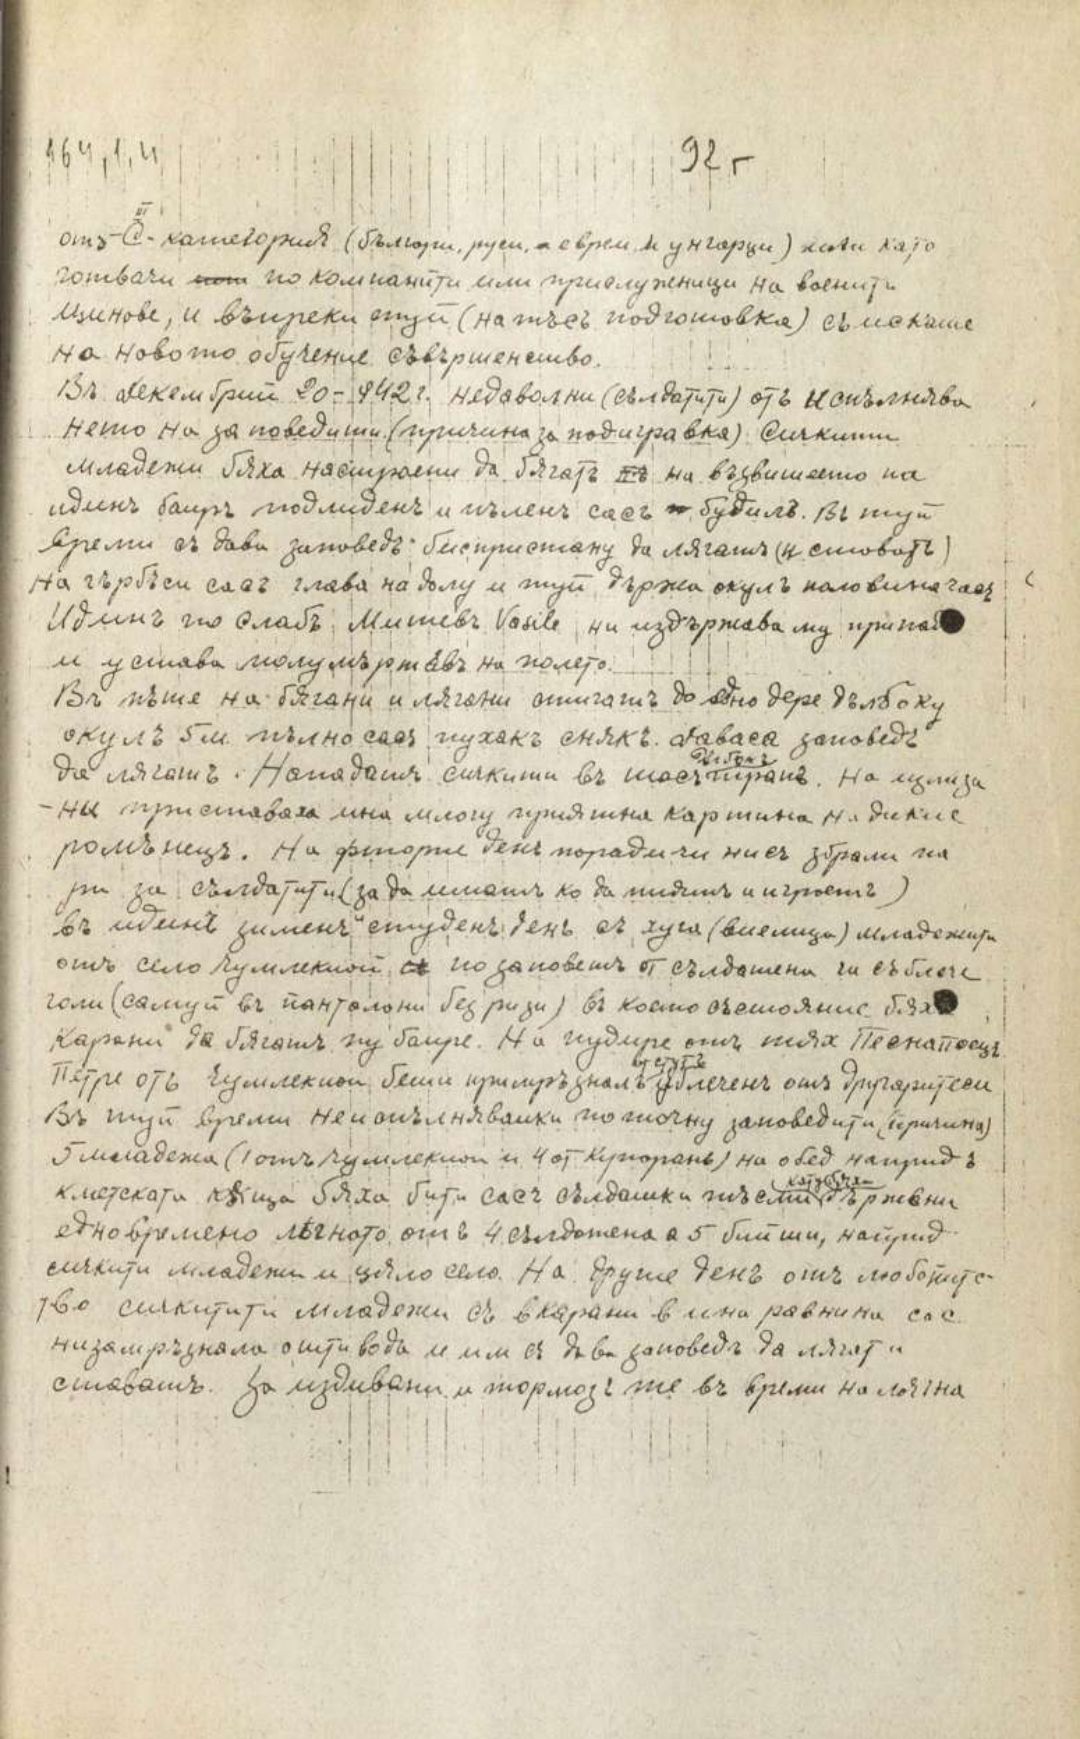 164,1,4
92 г
III
отъ-С- категория (българи, руси, евреи и унгарци) като
готвачи по компаниіти или прислуженици на военити
чинове, и въпреки туй (на тъсъ подготовка) съ искаше
на новото обучение съвършенство.
Въ декемврий 20-942 г. недаволни (сълдатити) отъ испълнява
нето на заповедити (причина за подигравка) Сичкити
младежи бяха настроени да бягатъ на възвишеето на
идинъ баиръ подлиденъ и пъленъ састъ будилъ. Въ туй
време съ дава заповедъ беспристану да лягатъ (и стоватъ)
на гърбъси састъ глава на долу и туй държа окулъ половина часъ
Идинъ по слабъ Митевъ Vasile ни издържава му припад
и устава полумъртавъ на полето.
Въ пъте на бягани и лягани стигатъ до едно дере дълбоку
окулъ 5 м. пълно састъ пухакъ снякъ. даваса заповедъ
да лягатъ. Нападатъ сичкити въ тосъ трапъ. На излиза
-ни приставаха ина млогу приятна картина на дикис
ромънецъ. На фторие денъ поради чи нисъ збрали па
ри за сълдатити (за да иматъ ко да пиятъ и играетъ)
въ идинъ зименъ студенъ денъ съ хуга (виелица) младежити
отъ село Чумлекиой по заповетъ сълдатена га съблече
голи (самуй въ панталони без ризи) въ която състояние бях
карани да бягатъ пу баире. На пудире отъ тях Песнапоецъ
Петре отъ Чумлекиои беши примръзналъ облеченъ отъ другаритеси
Въ туй време неиспълнявайки по точну заповедити (причина)
5 младежа (1 отъ Чумлекиои и 4 от Купоранъ) на обед напридъ
кметската къща бяха бити састъ сълдашки държени
едновремено лячното отъ 4 сълдатена а 5 бийши, наприд
сичкити младежи и цяло село. На друге денъ отъ любопитс-
тво сичкитити младежи съ вкарани в ина равнина сос
низамръзнала ошти вода и им съ дава заповедъ да лягат и
ставатъ. За издивани и тормозъ же въ време на лячна